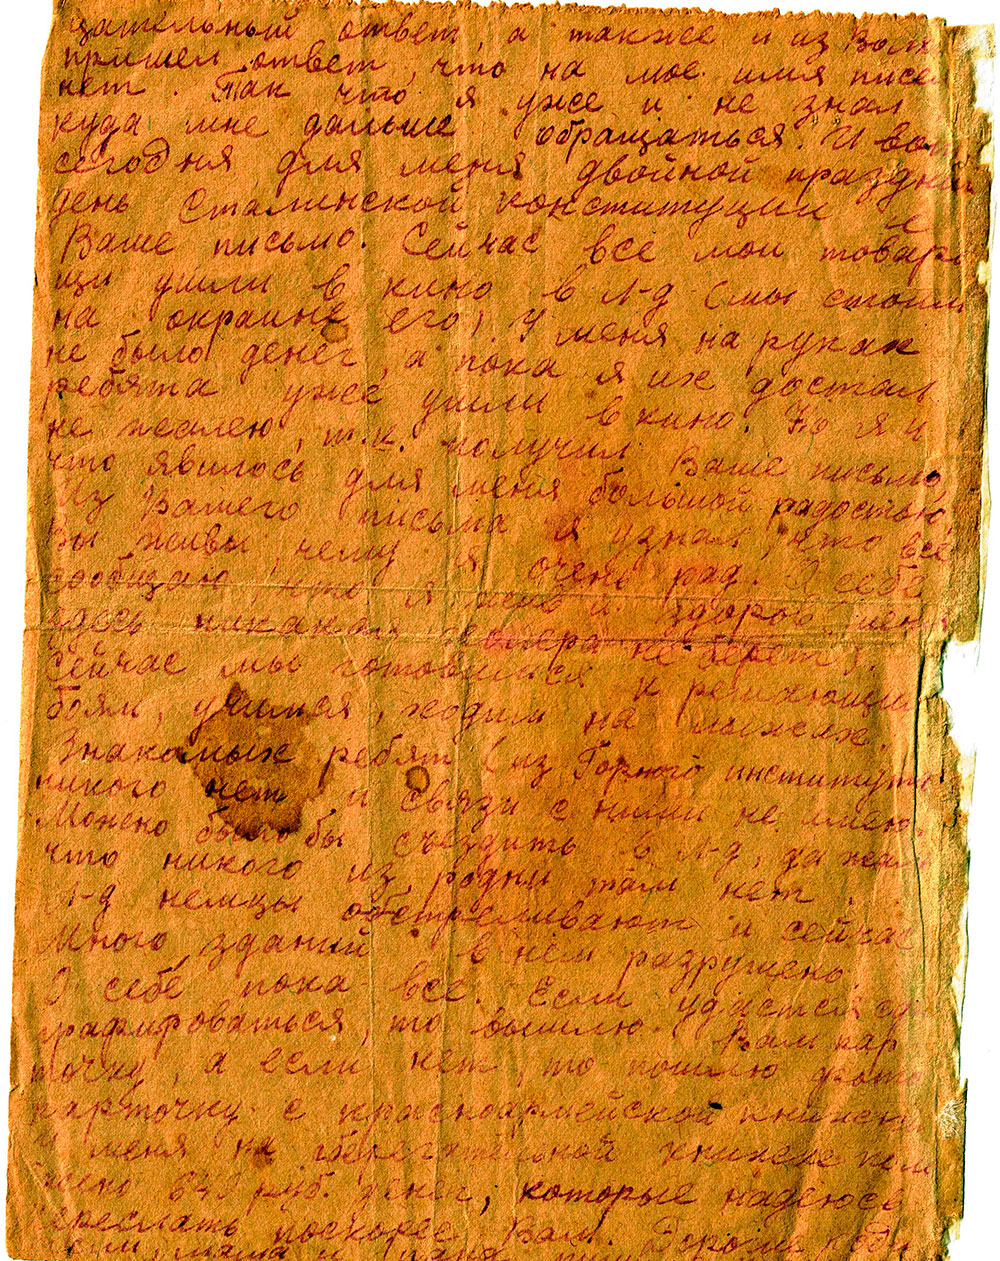 цательный ответ, а также и из Вол
пришел ответ, что на мое имя писе
нет. Так что я уже и не знал
куда мне дальше обращаться. И вот
сегодня для меня двойной праздник
день Сталинской конституции и
Ваше письмо. Сейчас все мои товари
щи ушли в кино в Л-д (мы стоим
на окраине его), у меня на руках
не было денег, а пока я их достал
ребята уже ушли в кино. Но я и
не жалею, т.к. получил Ваше письмо,
что явилось для меня большой радостью.
Из Вашего письма я узнал, что все
Вы живы, чему я очень рад. О себе
сообщаю, что я жив и здоров. (меня
здесь никакая холера не берет).
Сейчас мы готовимся к решающим
боям, учимся, ходим на лыжах.
Знакомых ребят (из Горного института)
никого нет и связи с ними не имею.
Можно было бы съездить в Л-д, да жаль
что никого из родни там нет.
Л-д немцы обстреливают и сейчас
Много зданий в нем разрушено.
О себе пока все. Если удастся
графироваться, то вышлю Вам кар
точку, а если нет, то пошлю фото
карточку с красноармейской книжки
У меня на сберегательной книжке
жено 640 руб. денег, которые надеюсь
переслать поскорее Вам. Дорогие роди
мама и папа